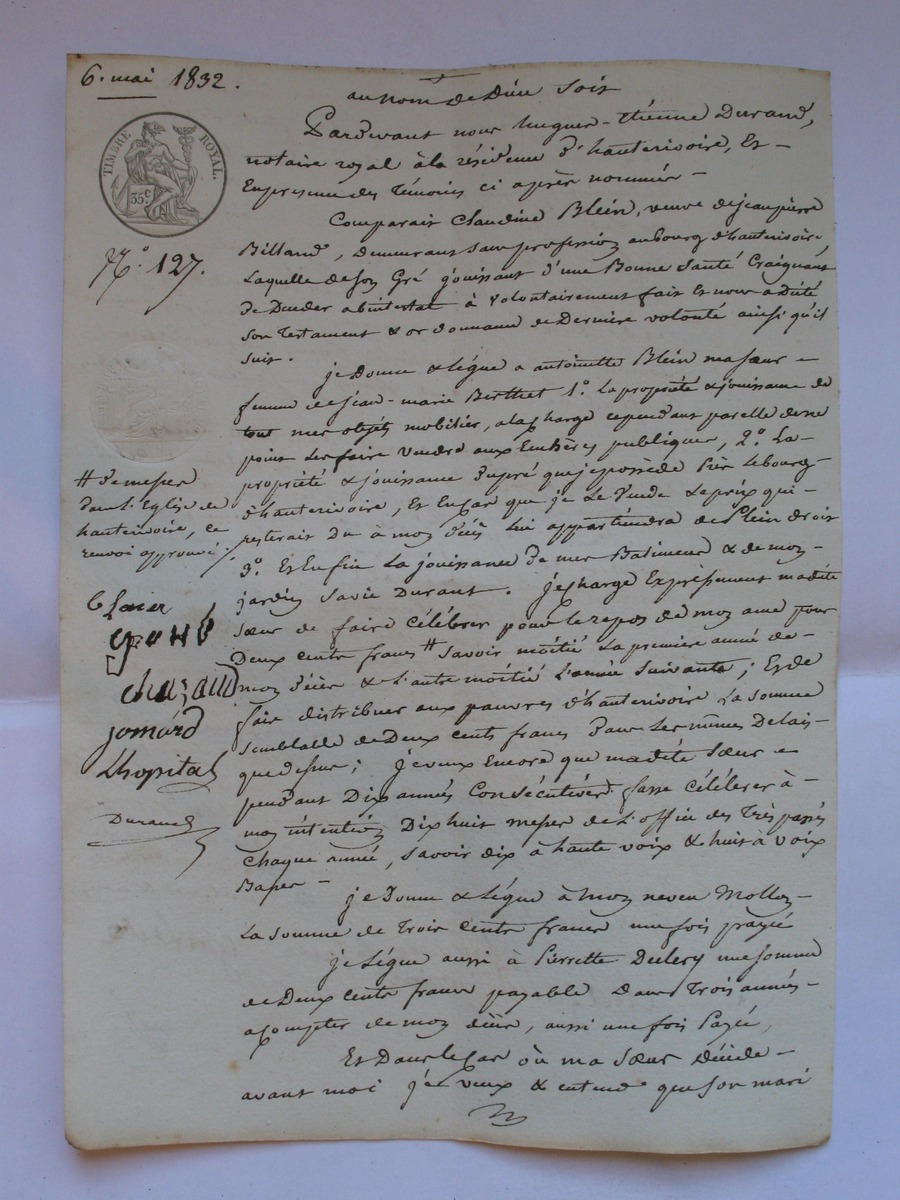 6. mai 1832.
au nom de Dieu soit
Pardevant nous hugues-Etienne Durand,
notaire royal à la résidence d'hauterivoire, Et
En presence des Témoins ci après nommés
Comparait Claudine Blein, veuve de jean pierre
Billand, demeurant sans profession au bourg d'hauterivoire
Laquelle de son Gré jouissant d'une Bonne Santé Craignant
de Décéder abintestat à volontairement fait Et nous a dicté
son Testament & ordonnance de Dernière volonté ainsi qu'il
suit.
TIMBRE ROYAL.
35 c.
N.° 127.
je Donne & Légue a antoinette Blein ma sœur
femme de jean-marie Berthet 1.° La propriété & jouissance de
tout mes objets mobiliers, a la charge cependant par elle de ne
point les faire vendre aux Enchères publiques, 2.° La
propriété & jouissance du pré que je possède Près Le bourg
d'hauterivoire, Et En cas que je Le Vende Le prix qui
resterait du à mon décès lui appartiendra de Plein droit
3.° Et Enfin La jouissance de mes Batiments & de mon
jardin sa vie Durant. Je charge Expressément ma dite
sœur de faire Célébrer pour le repos de mon ame pour
Deux cents francs # savoir moitié La première année de
mon décès & L'autre moitié L'année suivante ; Et de
faire distribuer aux pauvres d'hauterivoire La somme
semblable de Deux cents francs Dans Les mêmes Délais
que dessus ; je veux Encore que ma dite sœur
pendant Dix années Consécutives fasse Célébrer à
mon intention Dix huit messes de L'office des Très passés
chaque année, savoir dix à haute voix & huit à voix
Basses
# de messes
dans L'Eglise de
hauterivoire, ce
renvoi approuvé
chazaud
jomard
Lhopital
Durand
je Donne & Légue à mon neveu Mollon
La somme de Trois cents francs une fois payée
je Légue aussi à Pierrette une somme
de Deux cents francs payable Dans Trois années
a compter de mon décès, aussi une fois Payée,
Et Dans le cas où ma sœur Décède
avant moi je veux & entends que son mari